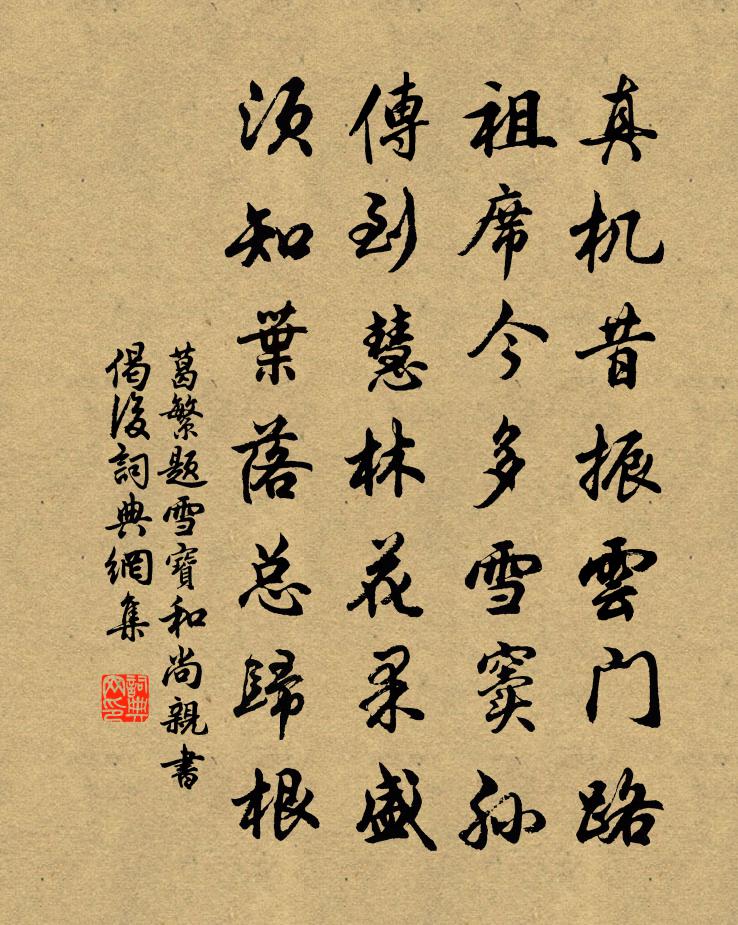 真机昔振雲门路
祖席今多雪窦孙
傳到慧林花果盛
须知葉落总歸根
葛繁题雪寶和尚親書
偈後詞典網集
詞典网印